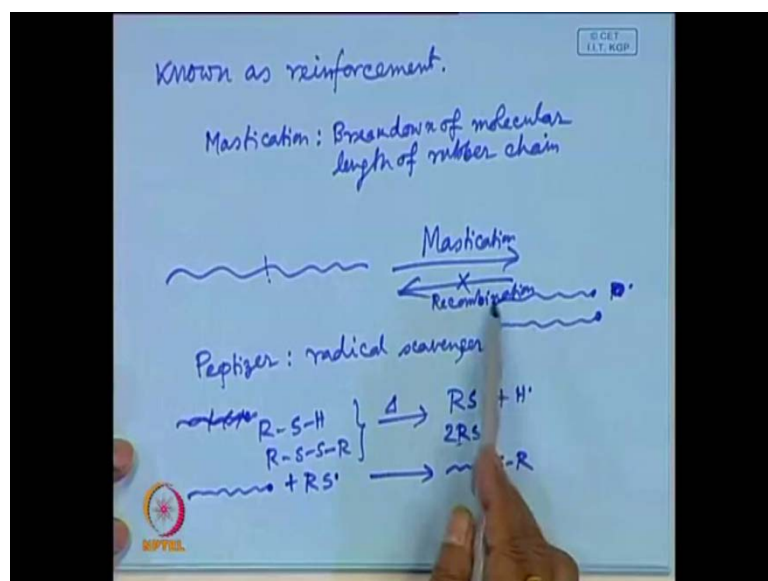 © CET
I.I.T. KGP
Known as reinforcement.
Mastication: Breakdown of molecular
length of rubber chain
Mastication
Recombination
Peptizer: radical scavenger
R-S-H
R-S-S-R
Δ
RS + H•
2RS
+ RS•
-R
NPTEL